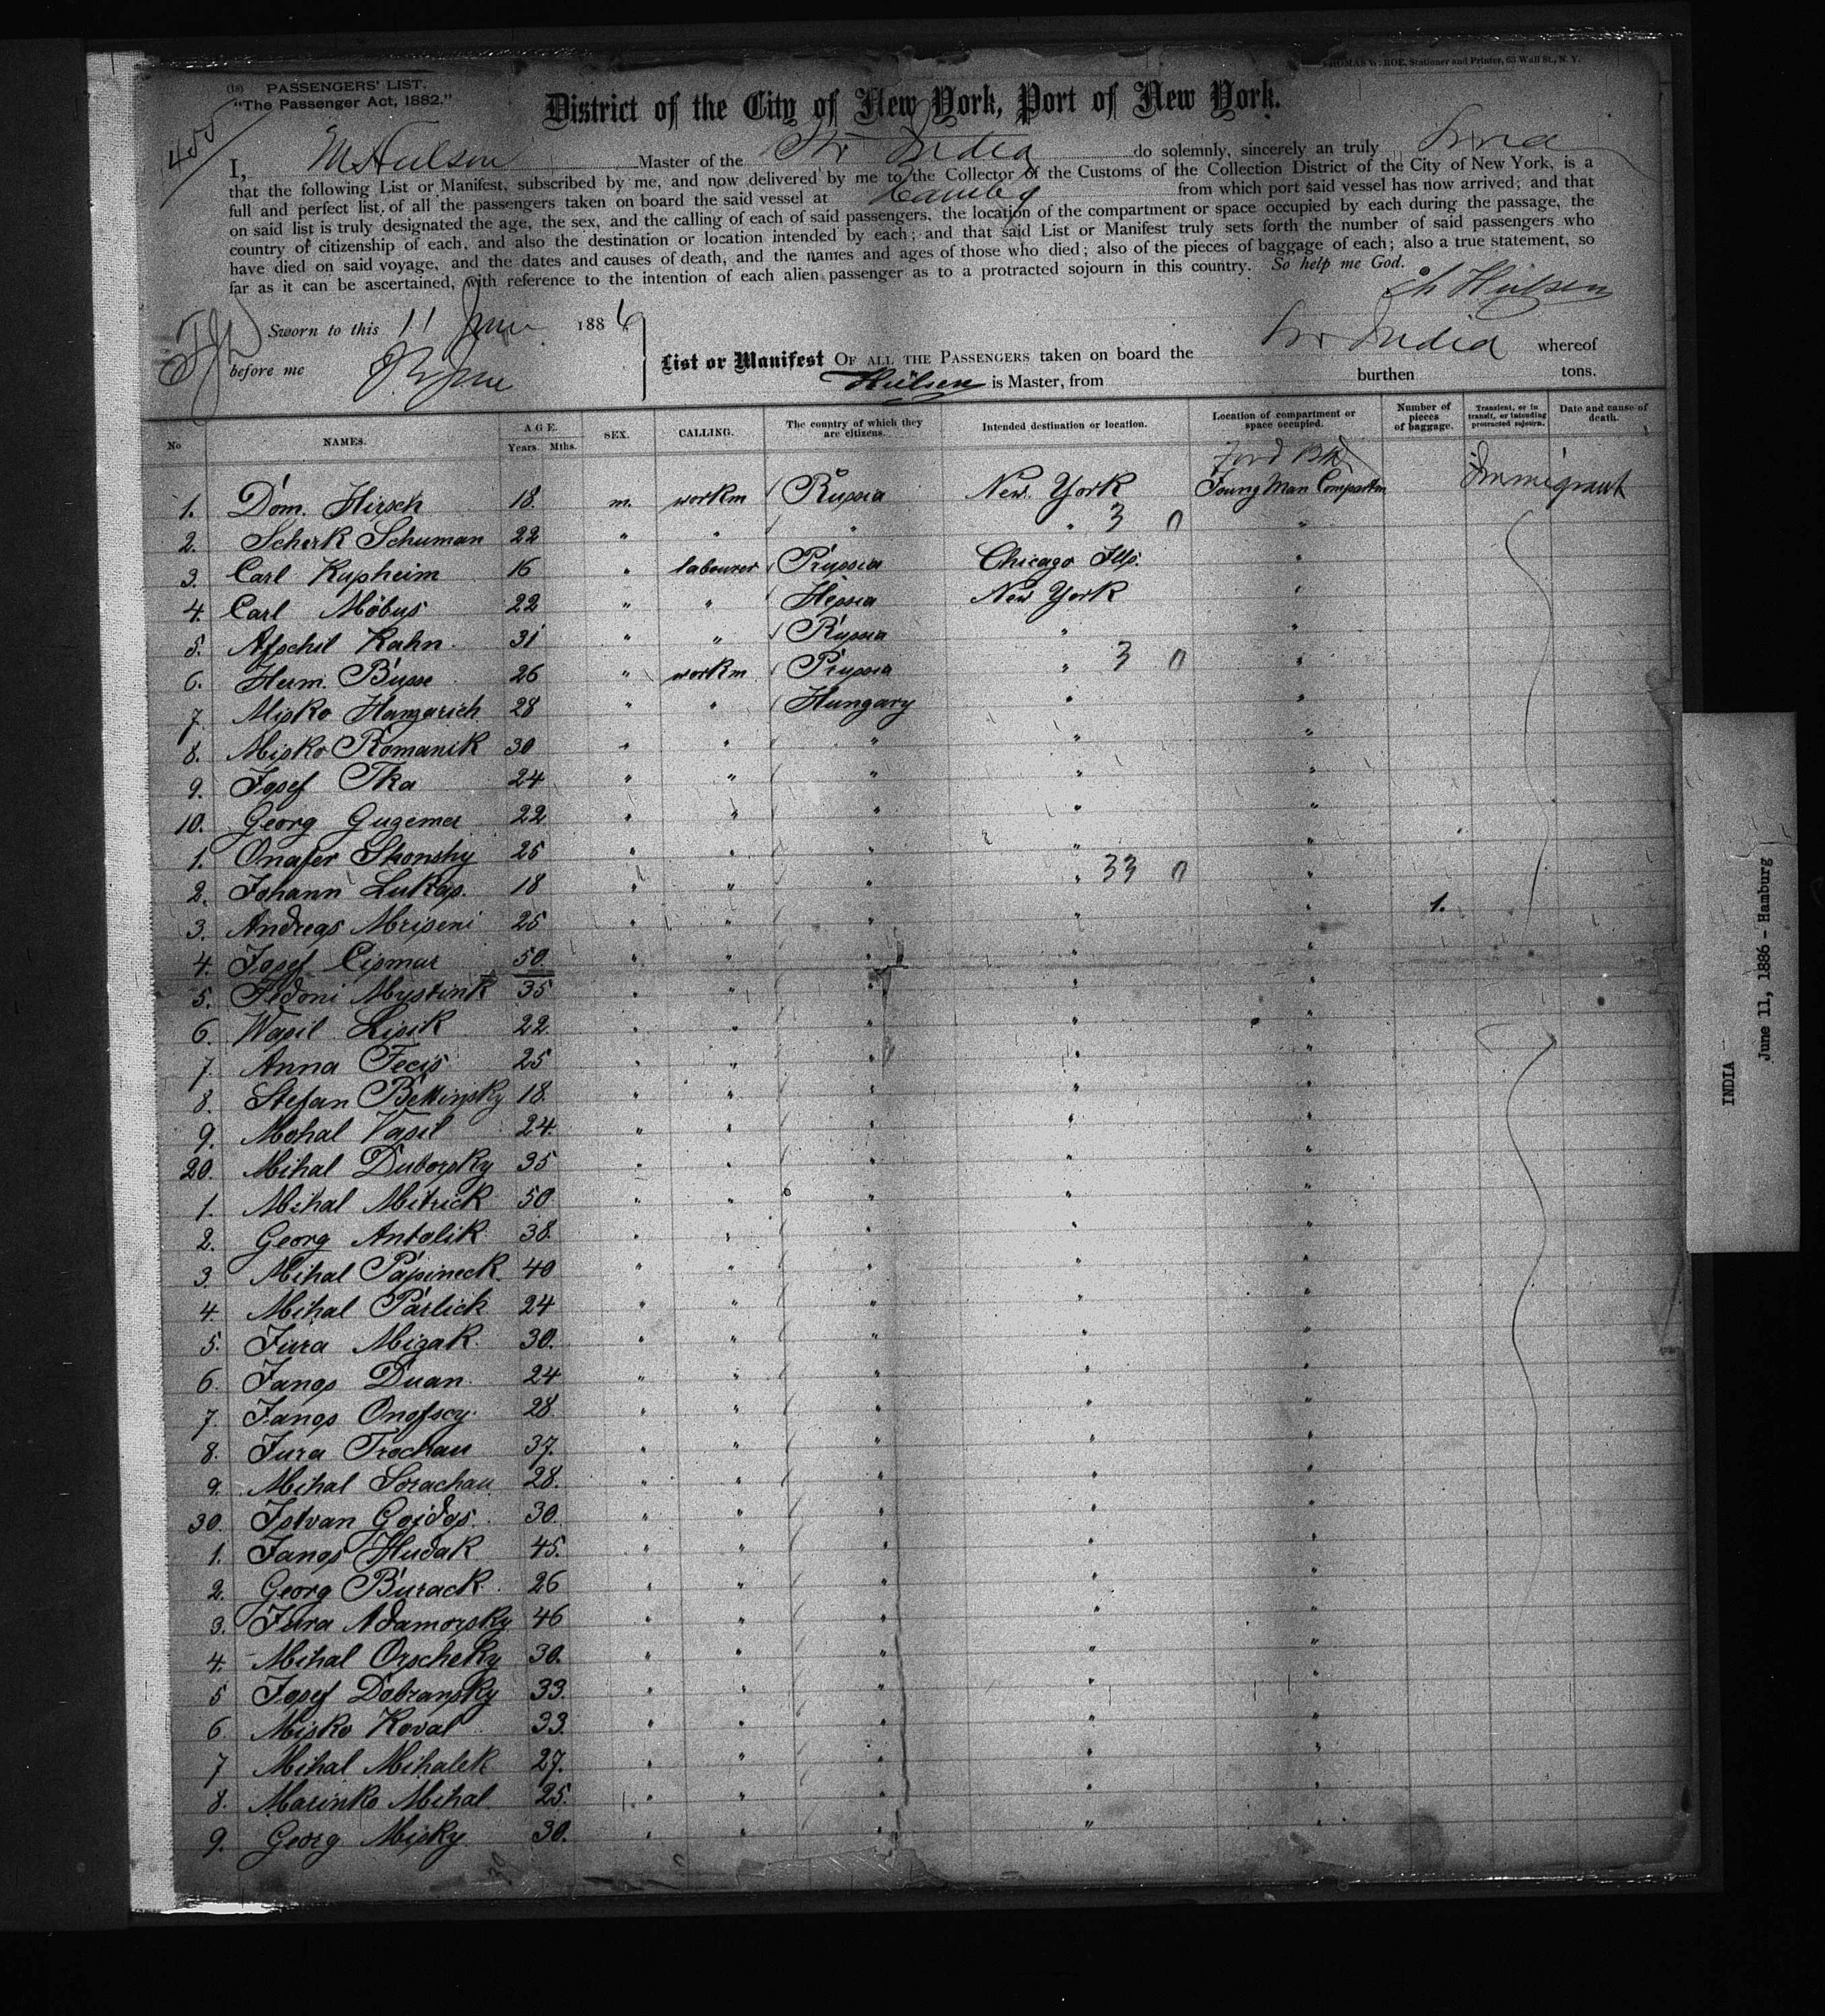 THOMAS W. ROE, Stationer and Printer, 63 Wall St., N. Y.
(18) PASSENGERS' LIST.
"The Passenger Act, 1882."
District of the City of New York, Port of New York.
I, M Hülsen Master of the Str India do solemnly, sincerely an truly
that the following List or Manifest, subscribed by me, and now delivered by me to the Collector of the Customs of the Collection District of the City of New York, is a
full and perfect list of all the passengers taken on board the said vessel at Hamburg from which port said vessel has now arrived; and that
on said list is truly designated the age, the sex, and the calling of each of said passengers, the location of the compartment or space occupied by each during the passage, the
country of citizenship of each, and also the destination or location intended by each; and that said List or Manifest truly sets forth the number of said passengers who
have died on said voyage, and the dates and causes of death, and the names and ages of those who died; also of the pieces of baggage of each; also a true statement, so
far as it can be ascertained, with reference to the intention of each alien passenger as to a protracted sojourn in this country. So help me God.
M Hülsen
Sworn to this 11 June 1886
before me
List or Manifest OF ALL THE PASSENGERS taken on board the Str India whereof
Hülsen is Master, from burthen tons.
No NAMES. AGE. Years. Mths. SEX. CALLING. The country of which they are citizens. Intended destination or location. Location of compartment or space occupied. Number of pieces of baggage. Transient, or in transit, or intending protracted sojourn. Date and cause of death.
1. Dom. Hirsch 18. m. workm Russia New York Young Man Compartm Immigrant
2. Scherk Schuman 22 " " " " 3 0 "
3. Carl Kupheim 16 " labourer Prussia Chicago Ills. "
4. Carl Möbus 22 " " Hessia New York "
5. Afschil Kahn 31 " " Russia " "
6. Herm. Busse 26 " workm Prussia " 3 0 "
7. Misko Hangarich 28 " " Hungary " "
8. Misko Romanik 30 " " " " "
9. Josef Tka 24 " " " " "
10. Georg Gugemer 22 " " " " "
1. Onafer Skonshy 25 " " " " "
2. Johann Lukas 18 " " " " 33 0 "
3. Andreas Mriseni 25 " " " " " 1.
4. Josef Cismar 50 " " " " "
5. Fedoni Mustink 35 " " " " "
6. Wasil Lisik 22 " " " " "
7. Anna Fecis 25 " " " " "
8. Stefan Bettinsky 18. " " " " "
9. Mohal Vasil 24. " " " " "
20. Mihal Duborsky 35 " " " " "
1. Mihal Mitrick 50 " " " " "
2. Georg Antolik 38. " " " "
3. Mihal Papineck 40 " " " " "
4. Mihal Parlick 24 " " " " "
5. Jura Mizak 30. " " " " "
6. Janos Duan 24 " " " " "
7. Janos Onofscy 28. " " " " "
8. Jura Trochau 37. " " " " "
9. Mihal Sorachau 28. " " " " "
30. Istvan Goidos 30. " " " " "
1. Janos Hudak 45. " " " " "
2. Georg Burack 26 " " " " "
3. Jura Adamorsky 46 " " " " "
4. Mihal Orscheky 30. " " " " "
5 Josef Dobransky 33. " " " " "
6. Misko Koval 33. " " " " "
7 Mihal Mihalek 27. " " " " "
8. Marinko Mihal 25. " " " " "
9. Georg Misky 30. " " " " "
INDIA
June 11, 1886 - Hamburg